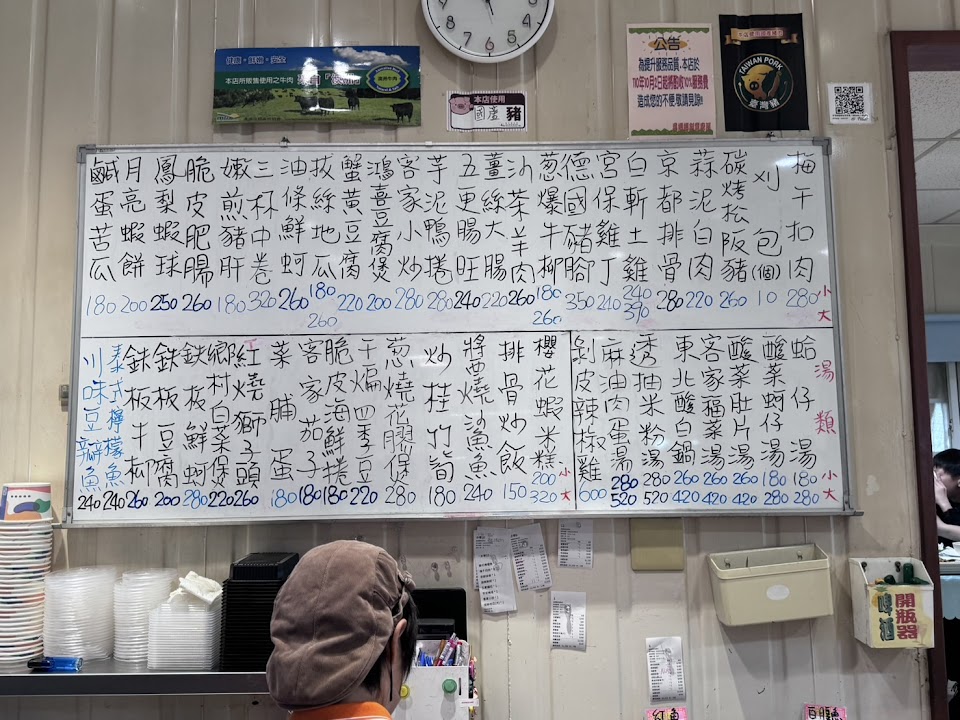 健康・鮮嫩・安全
本店所販售使用之牛肉
澳洲牛肉
本店使用
國產豬
公告
為提升服務品質,本店於
110年10月2日起將酌收10%服務費
造成您的不便敬請見諒!
TAIWAN PORK
臺灣豬
小
大
梅干扣肉 280
刈包(個) 10
碳烤松阪豬 260
蒜泥白肉 220
京都排骨 280
白斬土雞 240 390
宮保雞丁 210
德國豬腳 350
蔥爆牛柳 180 260
沙茶羊肉 260
薑絲大腸 220
五更腸旺 240
芋泥鴨捲 280
客家小炒 280
鴻喜豆腐煲 200
蟹黃豆腐 220
拔絲地瓜 180 260
油條鮮蚵 260
三杯中卷 320
嫩煎豬肝 180
脆皮肥腸 260
鳳梨蝦球 250
月亮蝦餅 200
鹹蛋苦瓜 180
湯類 小 大
蛤仔湯 180 280
酸菜蚵仔湯 180 280
酸菜肚片湯 260 420
客家福菜湯 260 420
東北酸白鍋 260 420
透抽米粉湯 280 520
麻油肉蛋湯 280 520
剝皮辣椒雞 600
小
大
櫻花蝦米糕 200 320
排骨炒飯 150
醬燒鯊魚 240
炒桂竹筍 180
蔥燒花膠煲 280
干煸四季豆 220
脆皮海鮮捲 180
客家茄子 180
菜脯蛋 180
紅燒獅子頭 260
鄉村白菜煲 220
鉄板鮮蚵 280
鉄板豆腐 200
鉄板牛柳 260
泰式檸檬魚 240
川味豆瓣魚 240
開瓶器
啤酒